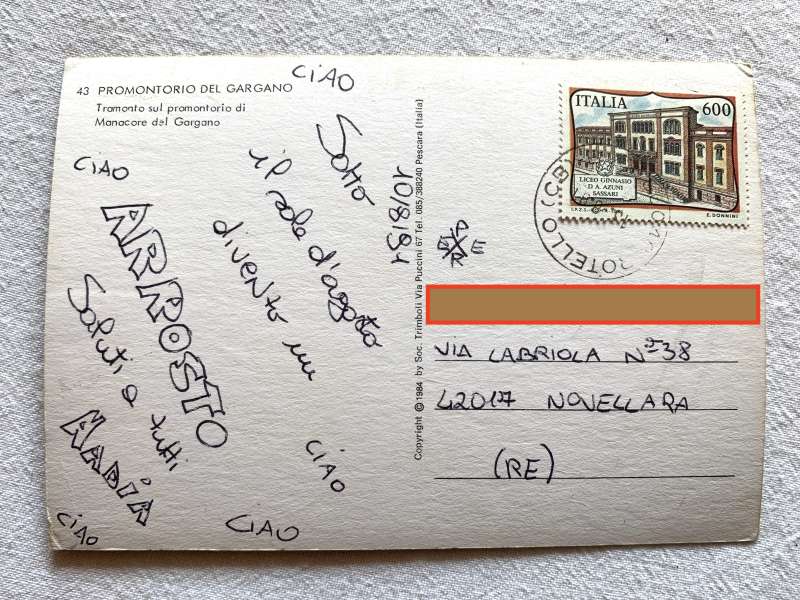 43 PROMONTORIO DEL GARGANO
Tramonto sul promontorio di
Manacore del Gargano
CIAO
CIAO
Sotto
il sole d'agosto
divento un
ARROSTO
Saluti a tutti
MARIA
CIAO
CIAO
CIAO
10/8/91
Copyright © 1984 by Soc. Trimboli Via Puccini 67 Tel. 085/388240 Pescara (Italia)
ITALIA 600
LICEO GINNASIO
D.A. AZUNI
SASSARI
E. DONNINI
ROTELLO (CB)
PER
VIA LABRIOLA N° 38
42017 NOVELLARA
(RE)